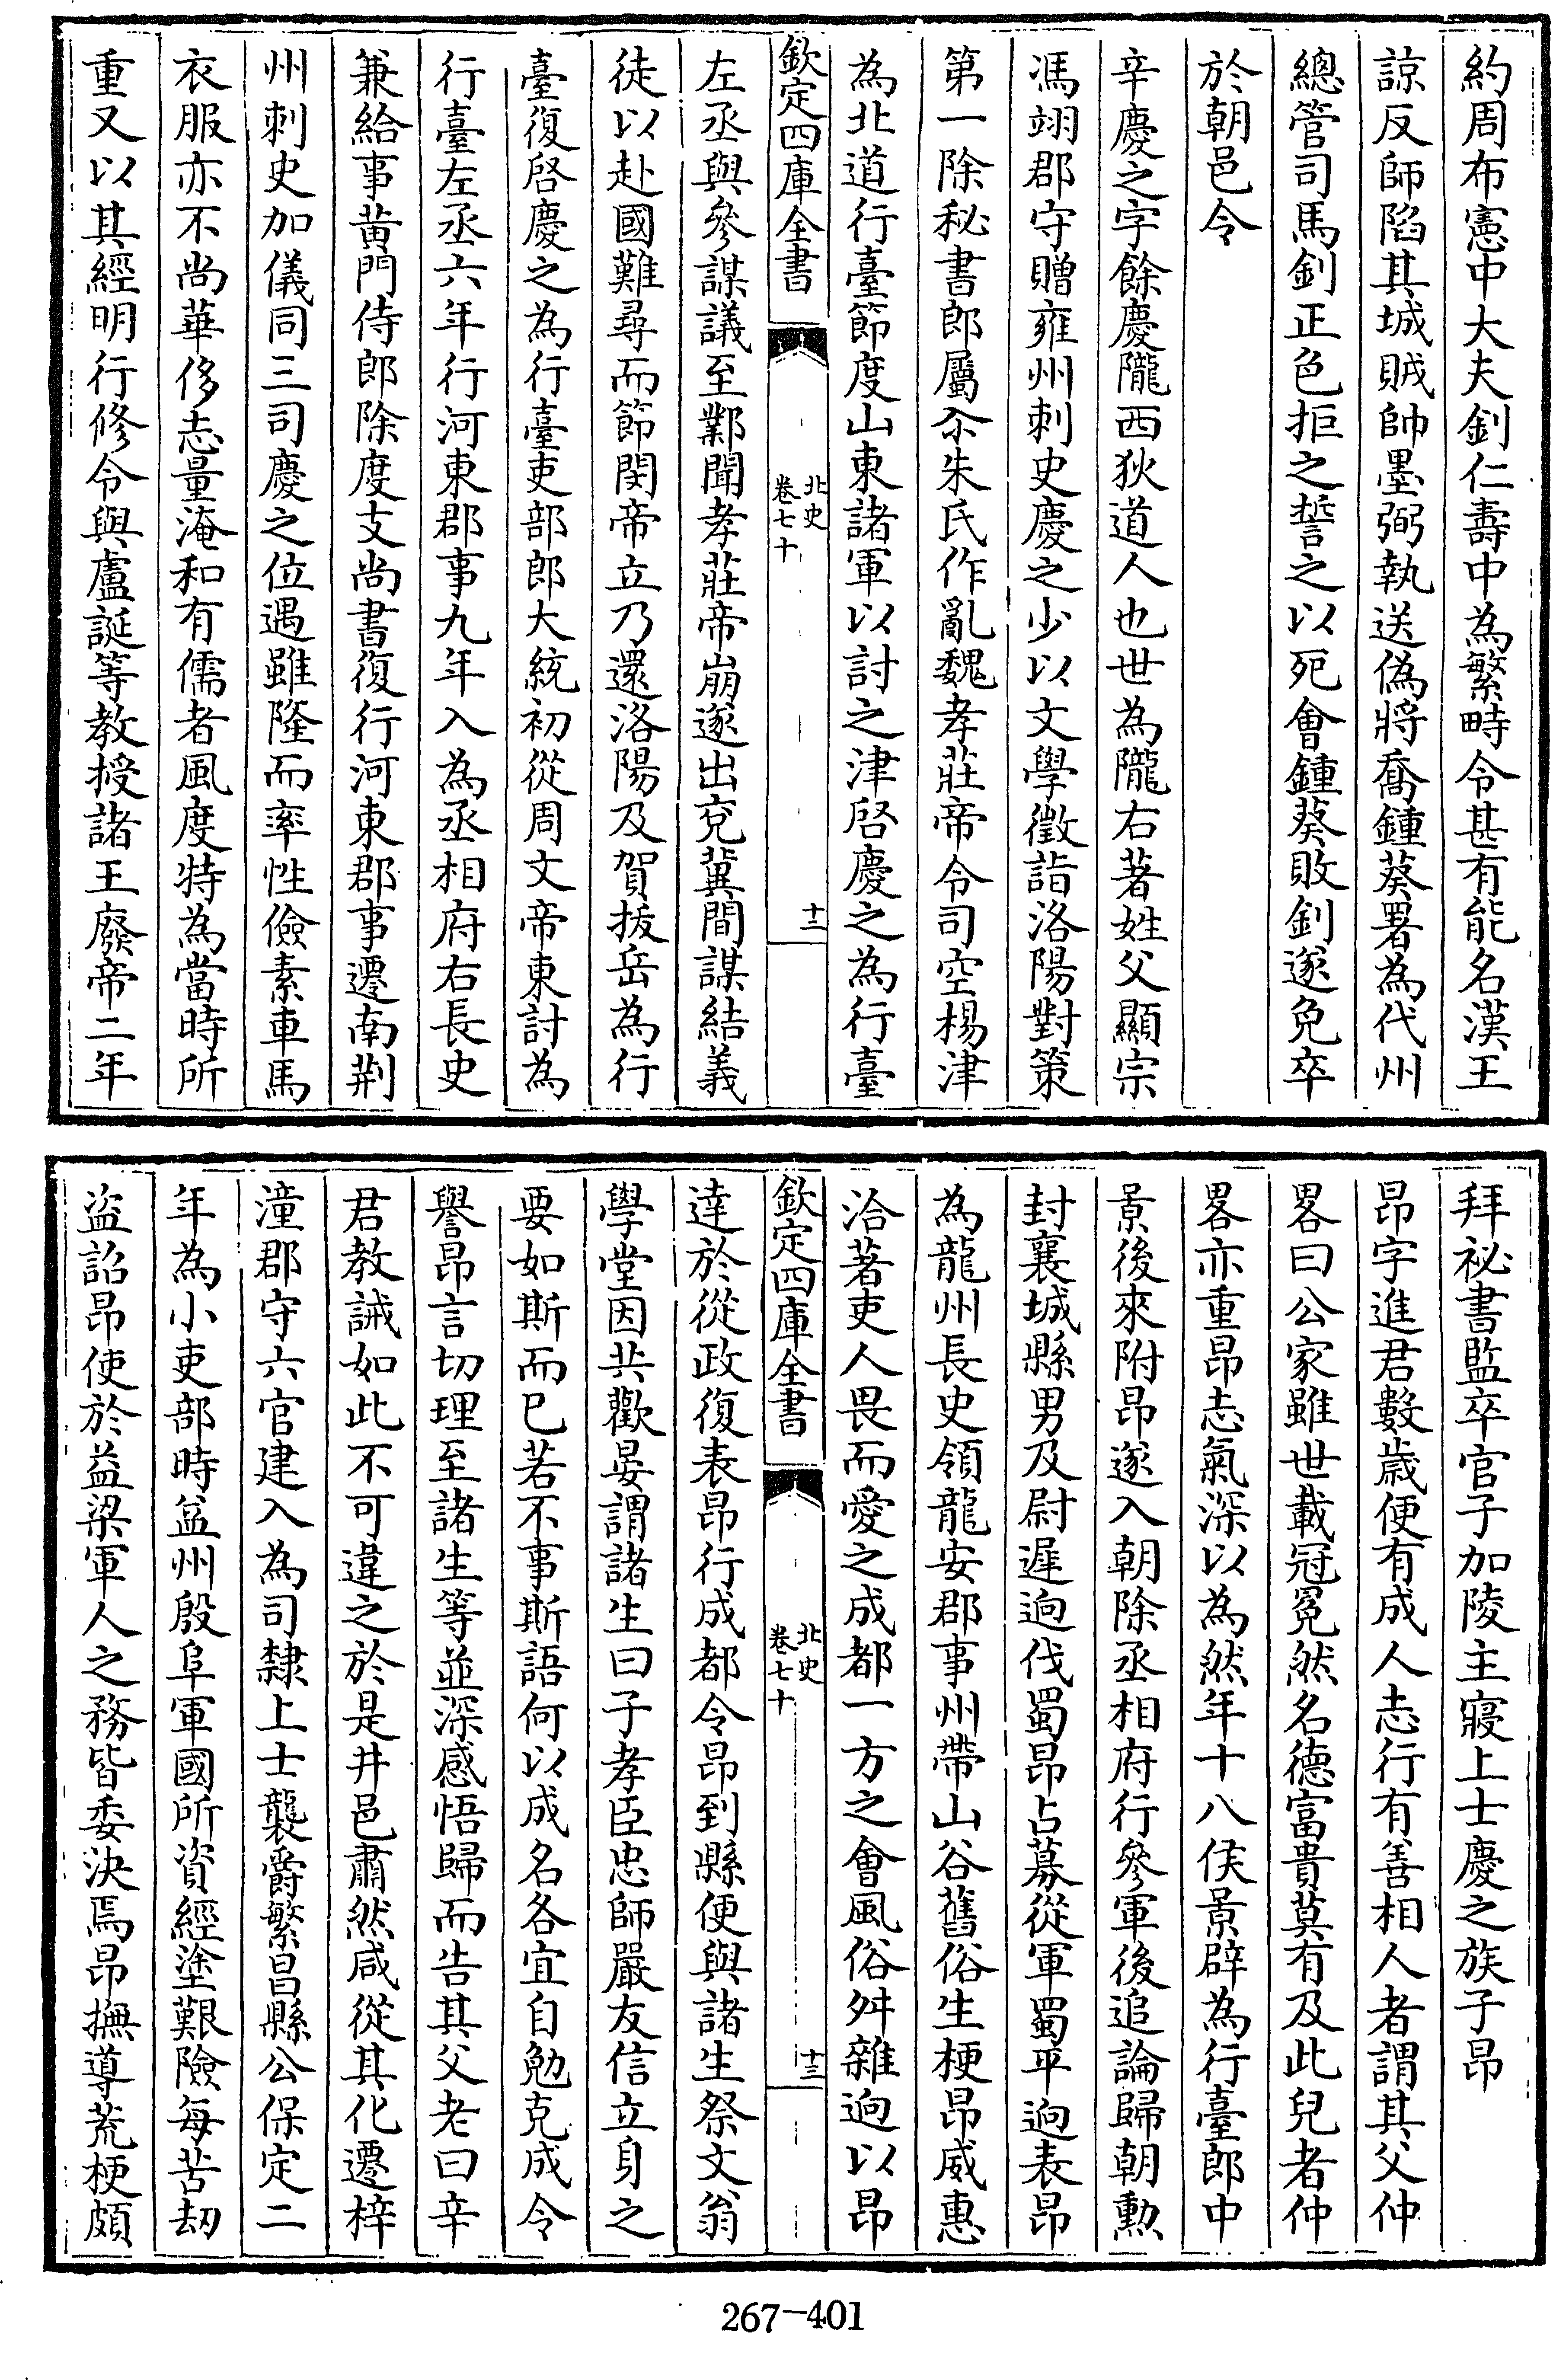 約周布憲中大夫釗仁壽中為繁畤令甚有能名漢王
諒反師陷其城賊帥墨弼執送偽將喬鍾葵署為代州
總管司馬釗正色拒之誓之以死會鍾葵敗釗遂免卒
於朝邑令
辛慶之字餘慶隴西狄道人也世為隴右著姓父顯宗
馮翊郡守贈雍州刺史慶之少以文學徵詣洛陽對策
第一除秘書郎屬尒朱氏作亂魏孝莊帝令司空楊津
為北道行臺節度山東諸軍以討之津啓慶之為行臺
欽定四庫全書
北史
卷七十
十三
左丞與參謀議至鄴聞孝莊帝崩遂出兗冀間謀結義
徒以赴國難尋而節閔帝立乃還洛陽及賀拔岳為行
臺復啓慶之為行臺吏部郎大統初從周文帝東討為
行臺左丞六年行河東郡事九年入為丞相府右長史
兼給事黃門侍郎除度支尚書復行河東郡事遷南荆
州刺史加儀同三司慶之位遇雖隆而率性儉素車馬
衣服亦不尚華侈志量淹和有儒者風度特為當時所
重又以其經明行修令與盧誕等教授諸王廢帝二年
拜祕書監卒官子加陵主寢上士慶之族子昂
昂字進君數歳便有成人志行有善相人者謂其父仲
畧曰公家雖世載冠冕然名德富貴莫有及此兒者仲
畧亦重昂志氣深以為然年十八侯景辟為行臺郎中
景後來附昂遂入朝除丞相府行參軍後追論歸朝勳
封襄城縣男及尉遲迥伐蜀昂占募從軍蜀平迥表昂
為龍州長史領龍安郡事州帶山谷舊俗生梗昂威惠
洽著吏人畏而愛之成都一方之會風俗舛雜迥以昂
欽定四庫全書
北史
卷七十
十三
達於從政復表昂行成都令昂到縣便與諸生祭文翁
學堂因共歡宴謂諸生曰子孝臣忠師嚴友信立身之
要如斯而已若不事斯語何以成名各宜自勉克成令
譽昂言切理至諸生等並深感悟歸而告其父老曰辛
君教誡如此不可違之於是井邑肅然咸從其化遷梓
潼郡守六官建入為司隸上士襲爵繁昌縣公保定二
年為小吏部時益州殷阜軍國所資經塗艱險每苦劫
盜詔昂使於益梁軍人之務皆委決焉昂撫導荒梗頗
267-401